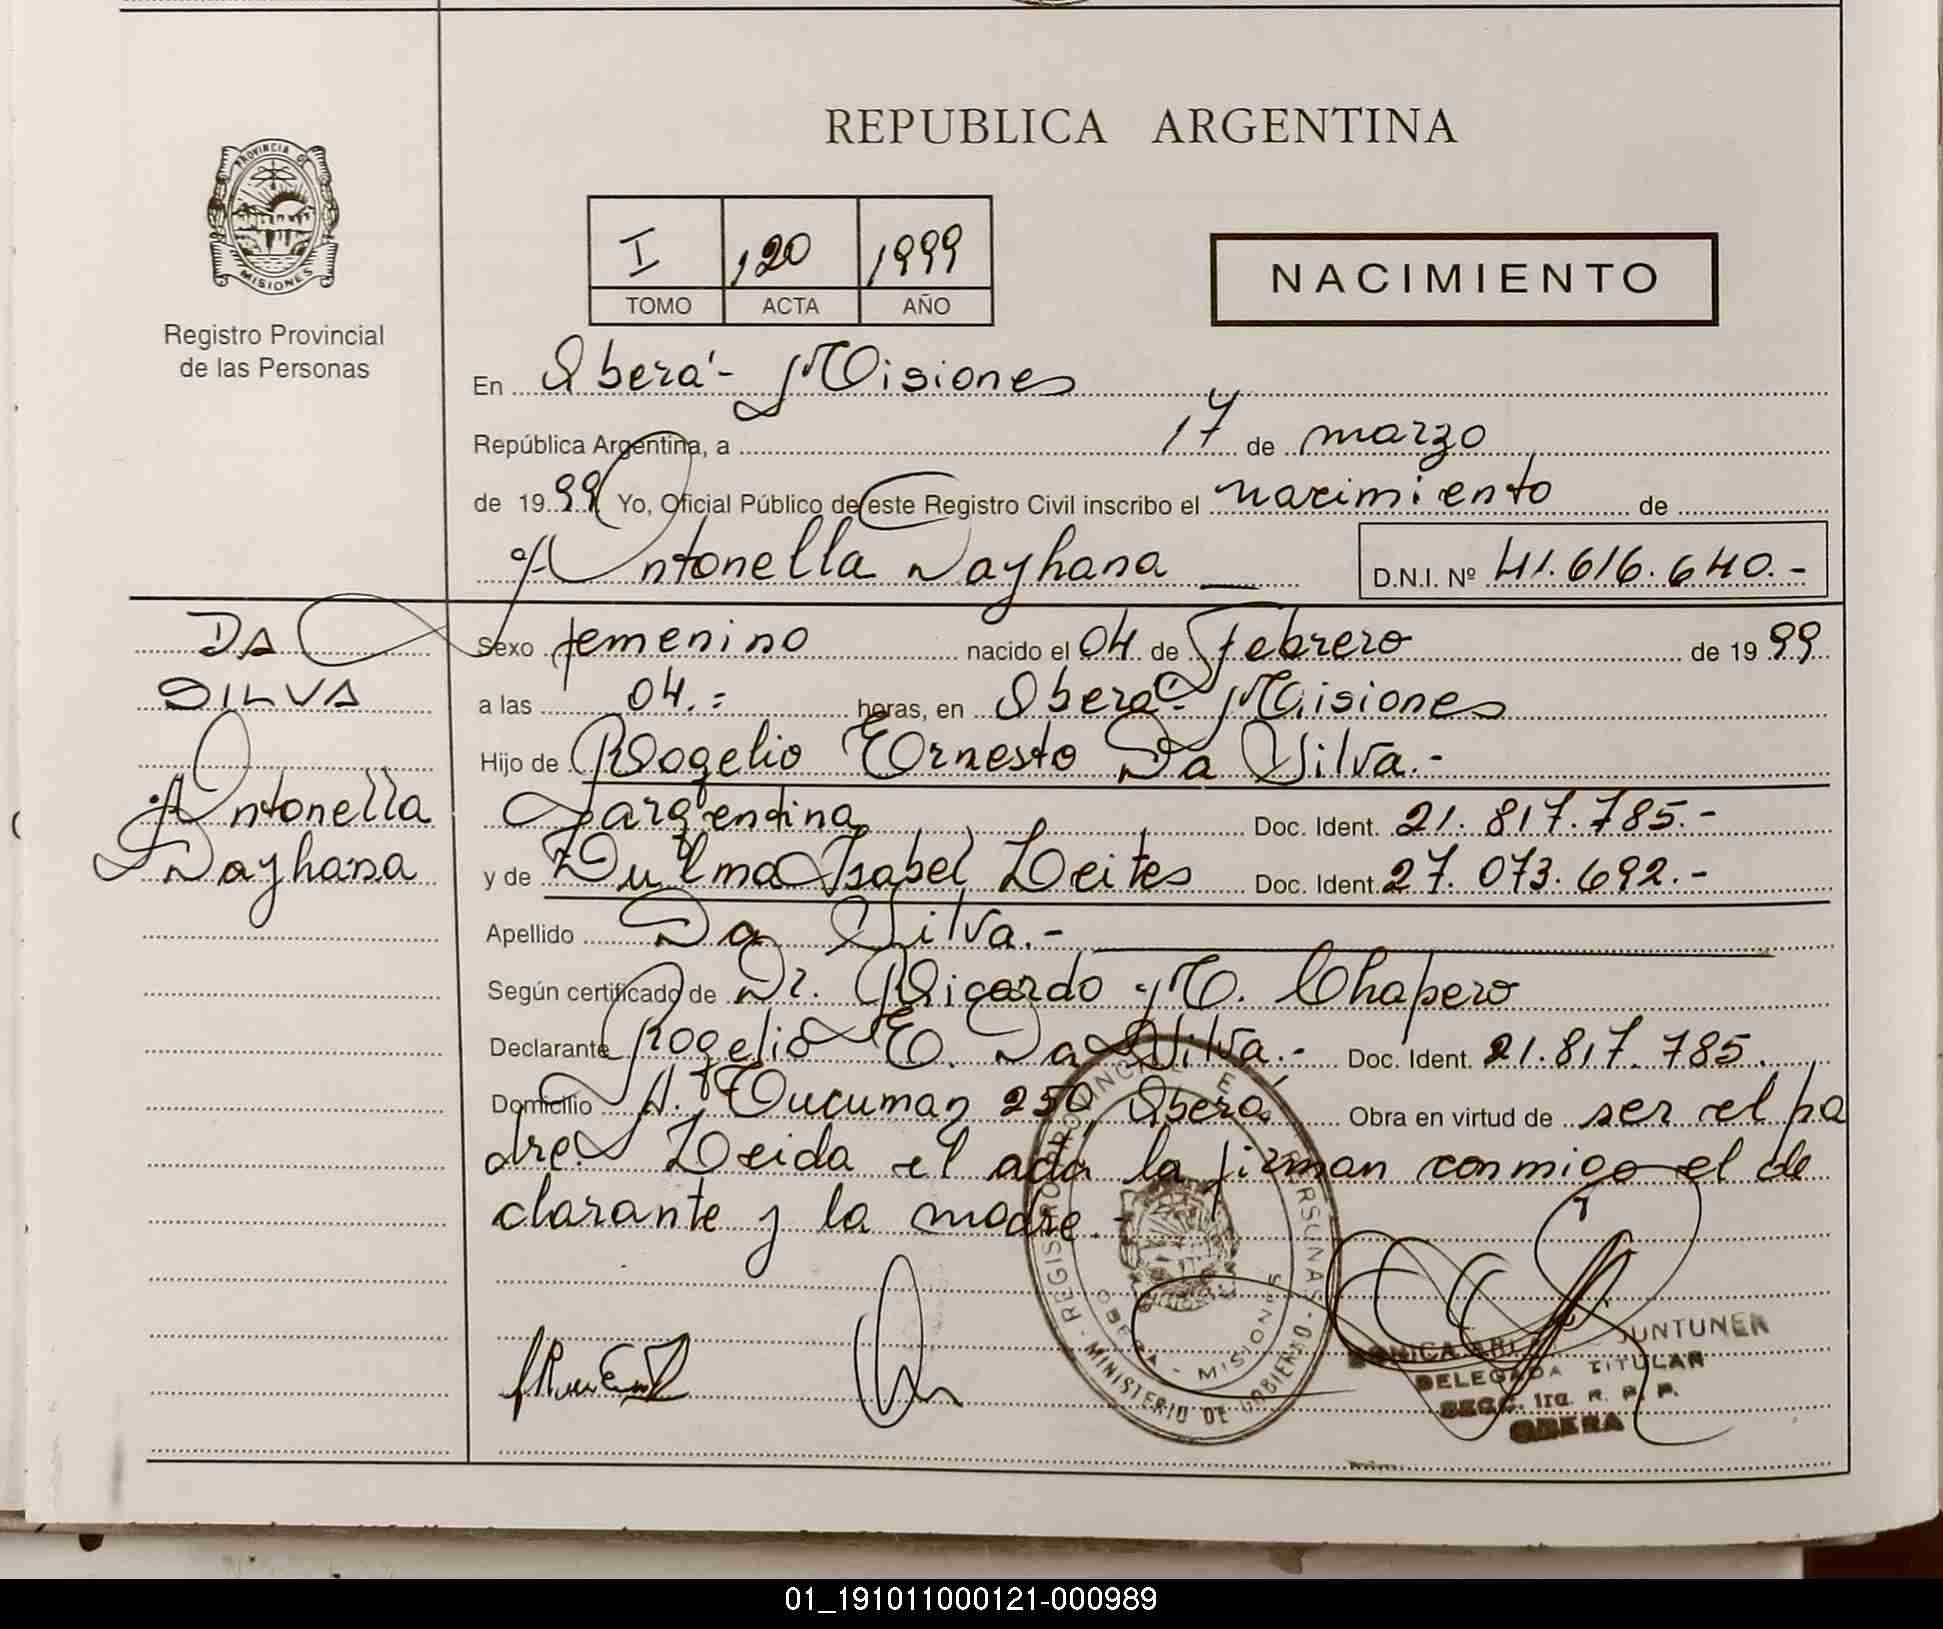 REPUBLICA ARGENTINA
PROVINCIA DE
MISIONES
Registro Provincial
de las Personas
I 120 1999
TOMO ACTA AÑO
NACIMIENTO
En Oberá - Misiones
República Argentina, a 17 de marzo
de 1999 Yo, Oficial Público de este Registro Civil inscribo el nacimiento de
Antonella Dayhana — D.N.I. Nº 41.616.640.-
DA
SILVA
Antonella
Dayhana
Sexo femenino nacido el 04 de Febrero de 1999
a las 04.- horas, en Oberá - Misiones
Hijo de Rogelio Ernesto Da Silva.-
argentina Doc. Ident. 21.817.785.-
y de Isabel Leites Doc. Ident. 27.073.692.-
Apellido Da Silva.-
Según certificado de Dr. Ricardo M. Chapero
Declarante Rogelio E. Da Silva.- Doc. Ident. 21.817.785.
Domicilio A. Tucuman 250, Oberá Obra en virtud de ser el pa
dre. Leida el acta la firman conmigo el de
clarante y la madre.-
REGISTRO PROVINCIAL DE LAS PERSONAS - MINISTERIO DE GOBIERNO -
OBERA - MISIONES
DELEGADA TITULAR
SECC. 1ra. R. P. P.
OBERA
01_191011000121-000989